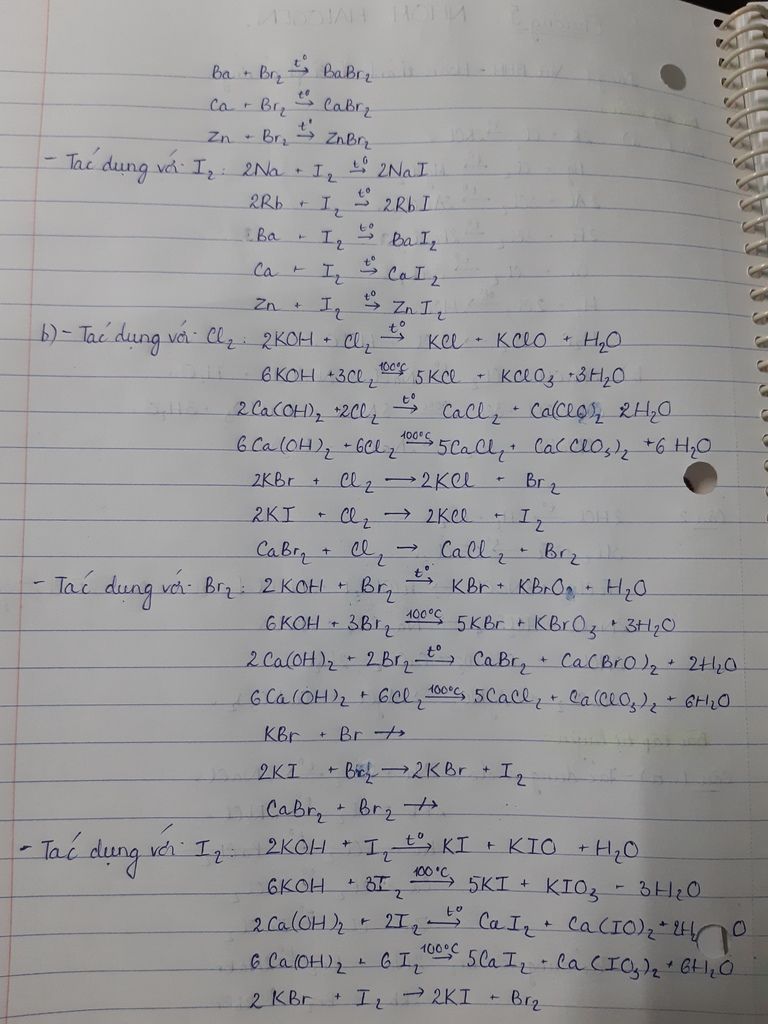 Ba + Br₂ →(t⁰) BaBr₂
Ca + Br₂ →(t⁰) CaBr₂
Zn + Br₂ →(t⁰) ZnBr₂
- Tác dụng với I₂: 2Na + I₂ →(t⁰) 2NaI
2Rb + I₂ →(t⁰) 2RbI
Ba + I₂ →(t⁰) BaI₂
Ca + I₂ →(t⁰) CaI₂
Zn + I₂ →(t⁰) ZnI₂
b) - Tác dụng với Cl₂: 2KOH + Cl₂ →(t⁰) KCl + KClO + H₂O
6KOH + 3Cl₂ →(100°C) 5KCl + KClO₃ + 3H₂O
2Ca(OH)₂ + 2Cl₂ →(t⁰) CaCl₂ + Ca(ClO)₂ 2H₂O
6Ca(OH)₂ + 6Cl₂ →(100°C) 5CaCl₂ + Ca(ClO₃)₂ + 6H₂O
2KBr + Cl₂ → 2KCl + Br₂
2KI + Cl₂ → 2KCl + I₂
CaBr₂ + Cl₂ → CaCl₂ + Br₂
- Tác dụng với Br₂: 2KOH + Br₂ →(t⁰) KBr + KBrO + H₂O
6KOH + 3Br₂ →(100°C) 5KBr + KBrO₃ + 3H₂O
2Ca(OH)₂ + 2Br₂ →(t⁰) CaBr₂ + Ca(BrO)₂ + 2H₂O
6Ca(OH)₂ + 6Cl₂ →(100°C) 5CaCl₂ + Ca(ClO₃)₂ + 6H₂O
KBr + Br ↛
2KI + Br₂ → 2KBr + I₂
CaBr₂ + Br₂ ↛
- Tác dụng với I₂: 2KOH + I₂ →(t⁰) KI + KIO + H₂O
6KOH + 3I₂ →(100°C) 5KI + KIO₃ - 3H₂O
2Ca(OH)₂ + 2I₂ →(t⁰) CaI₂ + Ca(IO)₂ + 2H₂O
6Ca(OH)₂ + 6I₂ →(100°C) 5CaI₂ + Ca(IO₃)₂ + 6H₂O
2KBr + I₂ → 2KI + Br₂